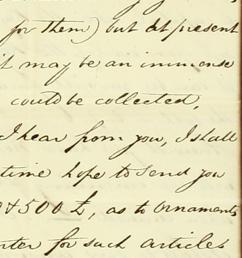 for them) but at present
it may be an immense
could be collected,
I hear from you, I shall
time hope to send you
&500 £, as to ornaments
for such articles